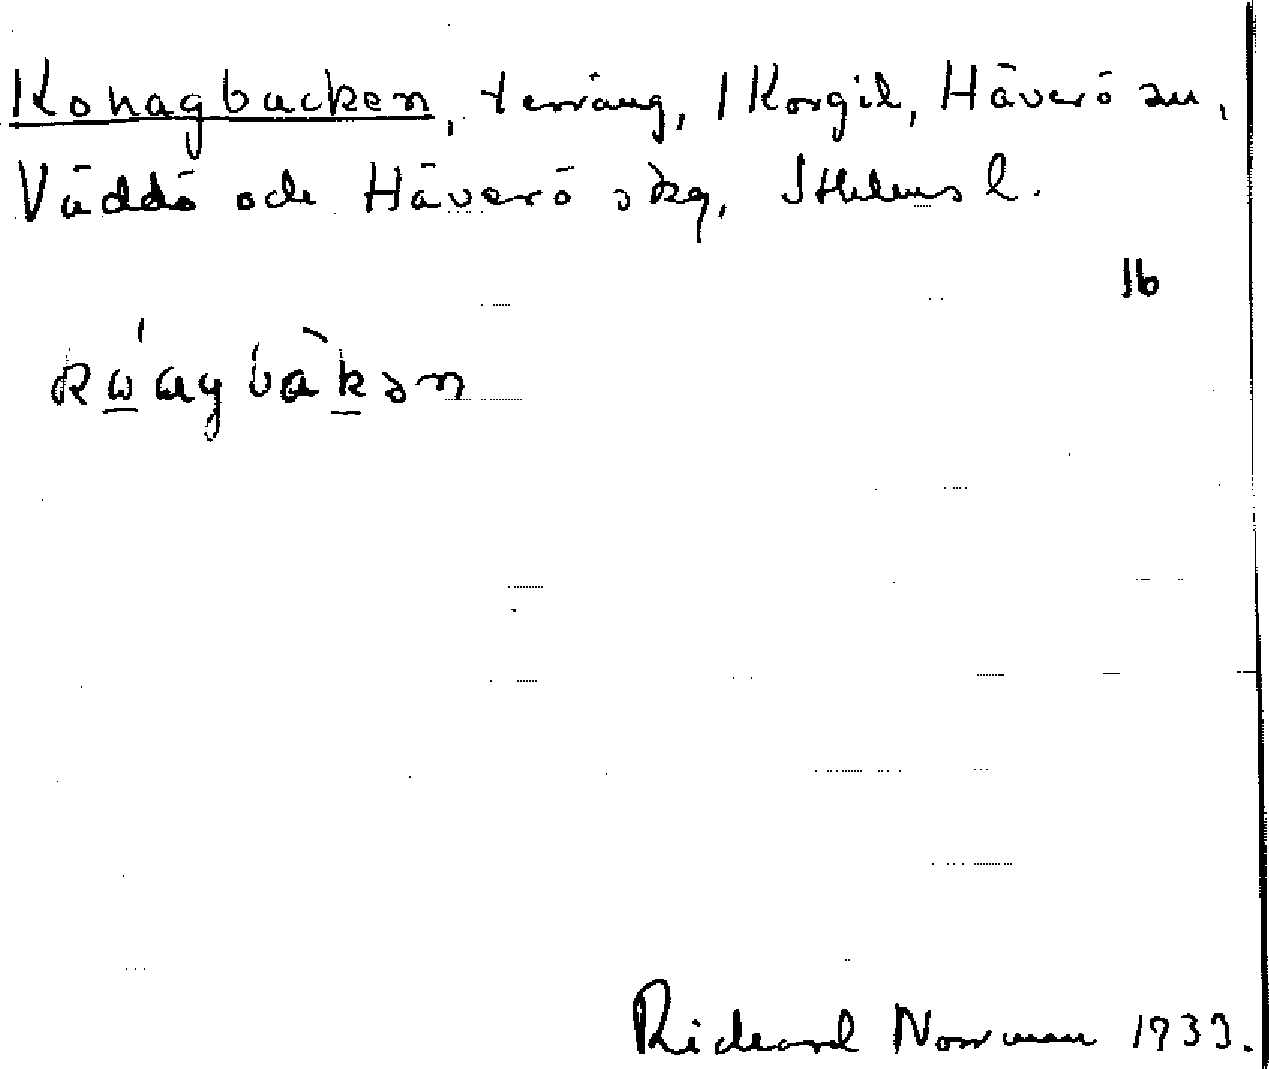 Kohagbacken, terräng, 1 Korgil, Häverö sn,
Väddö och Häverö skg, Sthlms l.
16
kώ̲agbàk̲ən
Richard Norrman 1933.